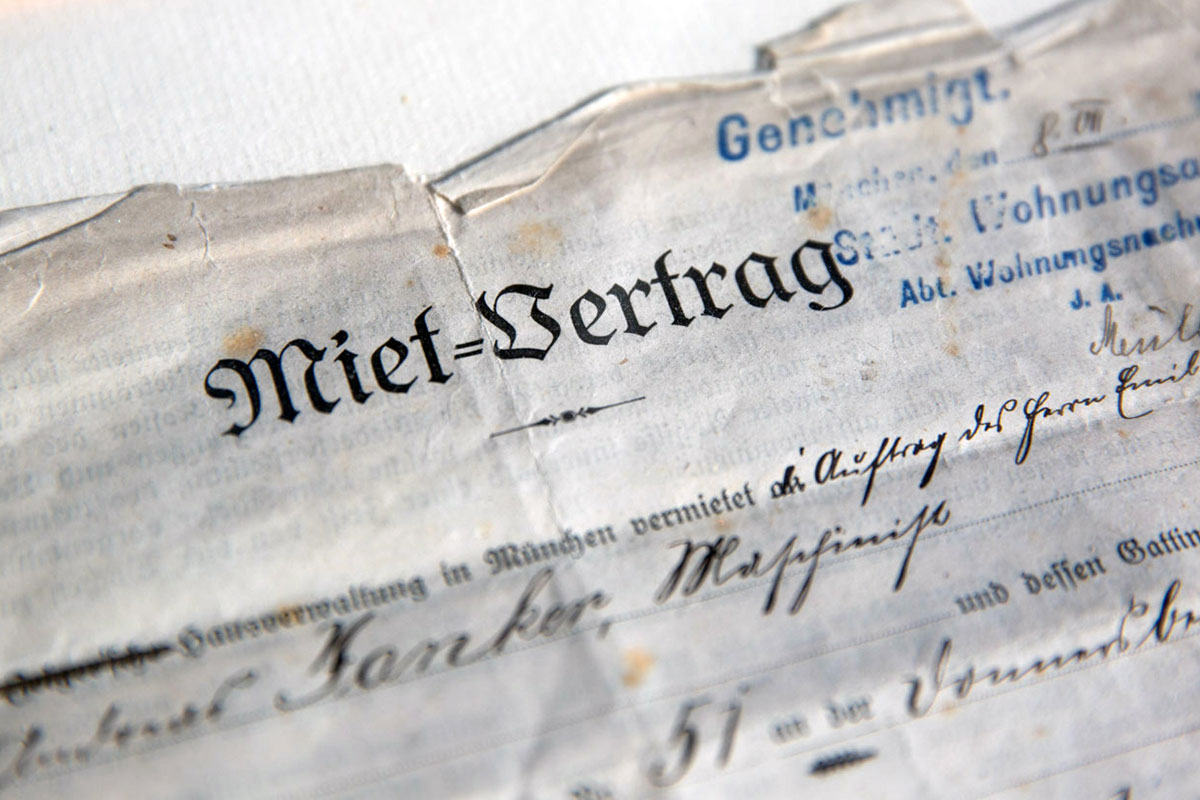 Genehmigt.
München, den 8. VII.
Städt. Wohnungsa
Abt. Wohnungsnachw
J. A.
Miet=Vertrag
Hausverwaltung in München vermietet Auftrag des Herrn Emil
Janker, Maschinist
und dessen Gattin
51 an der Donnersbe